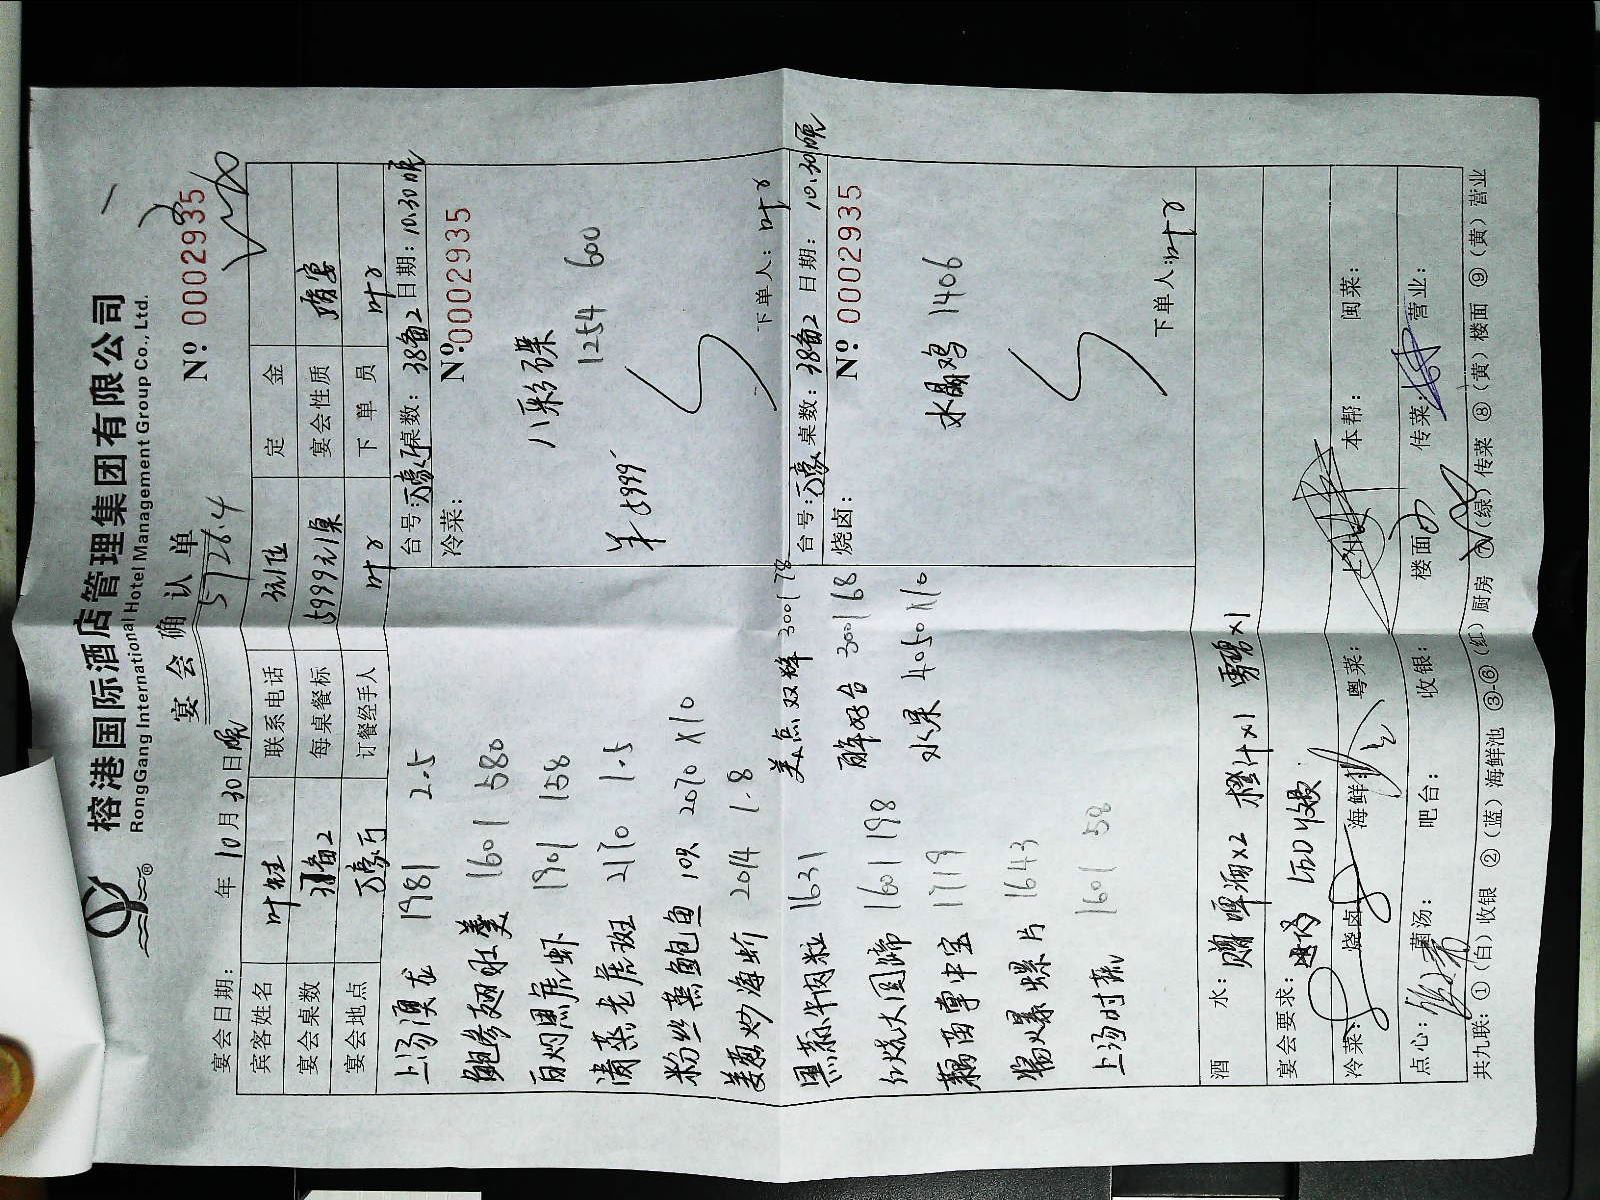 榕港国际酒店管理集团有限公司
RongGang International Hotel Management Group Co.,Ltd.
宴会确认单
5726.4
Nº 0002935
宴会日期: 年 10月30日晚
宾客姓名 联系电话 定金
宴会桌数 每桌餐标 5999元/桌 宴会性质
宴会地点 万豪厅 订餐经手人 叶 下单员 叶
上汤澳龙 1981 2.5
鲍参翅肚羹 1601 580
白灼黑虎虾 1901 158
清蒸老虎斑 2170 1.5
粉丝蒸鲍鱼 10只 2070 X10
姜葱炒海蛏 2014 1.8
黑菘牛肉粒 1631
红烧大圆蹄 1601 198
1719
酱爆螺片 1643
上汤时蔬 1601 58
美点双辉 3001 78
3001 68
水果 4050X10
台号: 万豪厅 桌数: 38备2 日期: 10.30晚
冷菜:
Nº:0002935
八彩碟
1254 600
下单人: 叶
台号: 万豪 桌数: 38备2 日期: 10.30晚
烧卤:
Nº 0002935
水晶鸡 1406
下单人: 叶
酒水: 赠啤酒x2 橙汁x1 雪碧x1
宴会要求: LED
冷菜: 烧卤: 海鲜: 粤菜: 本帮: 闽菜:
点心: 羹汤: 吧台: 收银: 楼面: 传菜: 营业:
共九联: ①(白)收银 ②(蓝)海鲜池 ③-⑥(红)厨房 ⑦(绿)传菜 ⑧(黄)楼面 ⑨(黄)营业